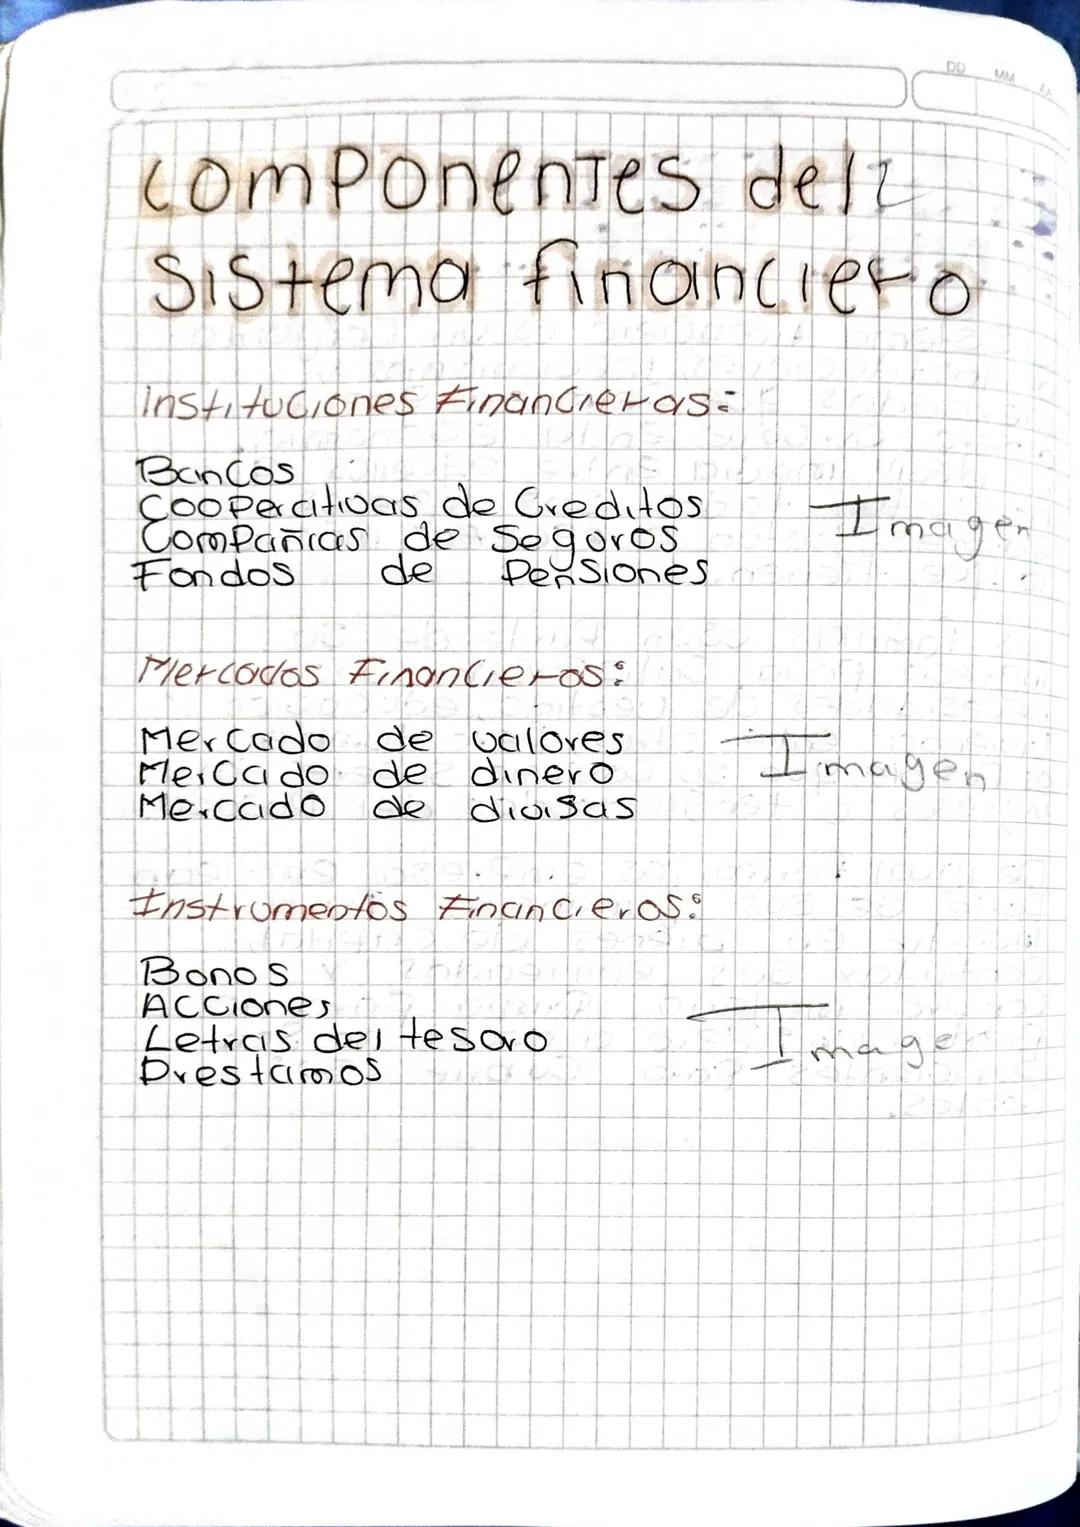 DD MM AA
componentes del
sistema financiero
Instituciones Financieras:
Bancos
Cooperativas de Creditos
Compañias de Seguros
Fondos de Pensiones
Imagen
Mercados Financieros:
Mercado de valores
Mercado de dinero
Mercado de divisas
Imagen
Instrumentos Financieros:
Bonos
Acciones
Letras del tesoro
Prestamos
Imagen